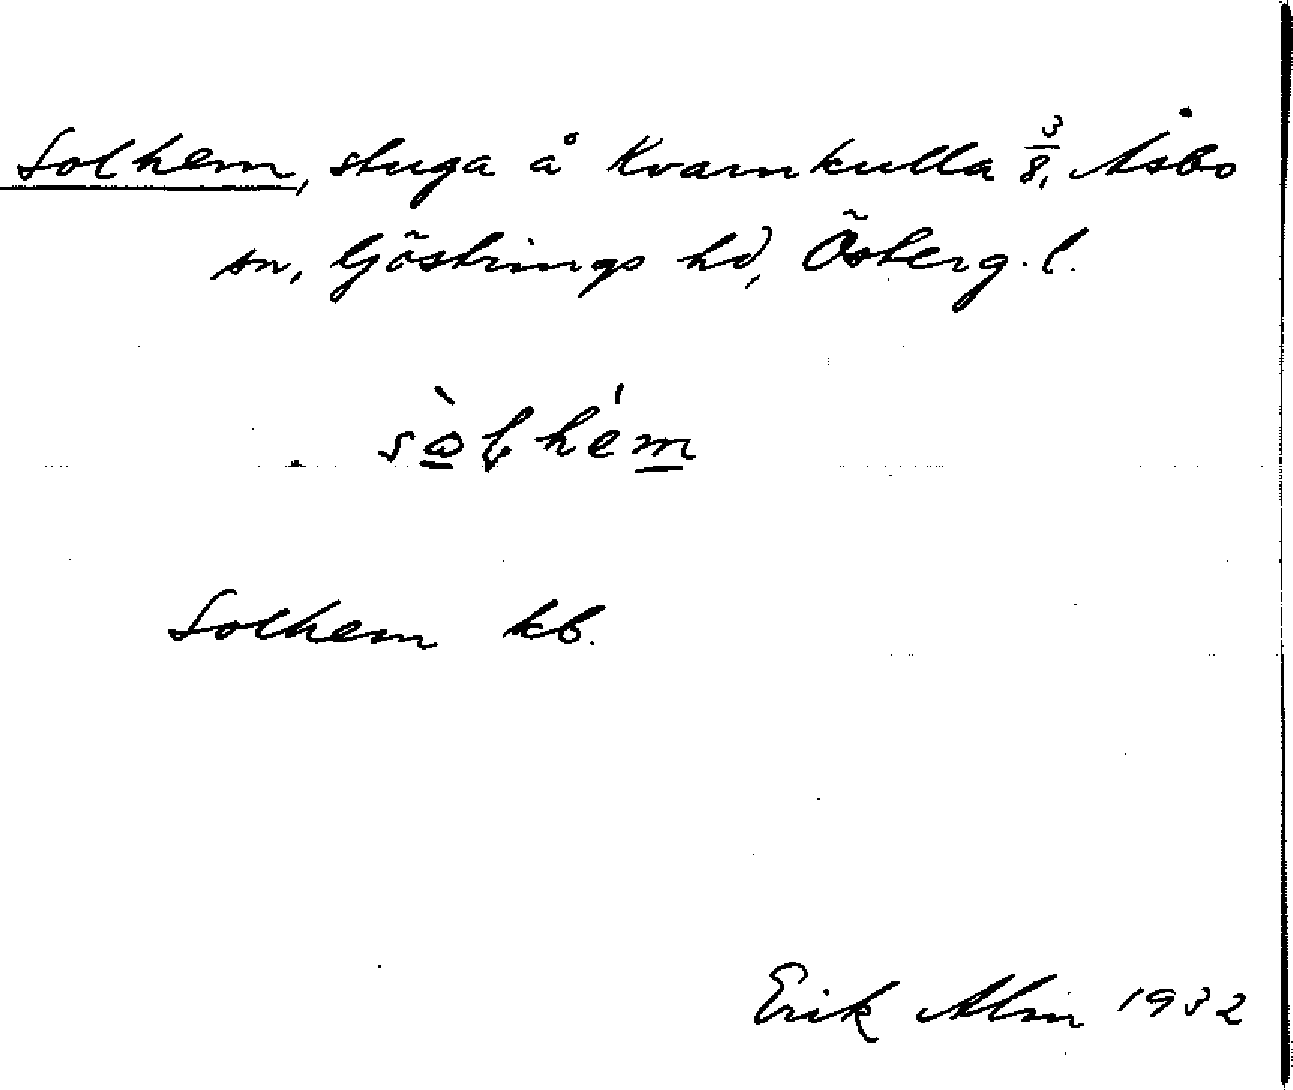 Solhem, stuga å Kvarnkulla 3/8, Åsbo
sn, Göstrings hd, Österg. l.
Solhem kb.
Erik Alm 1932